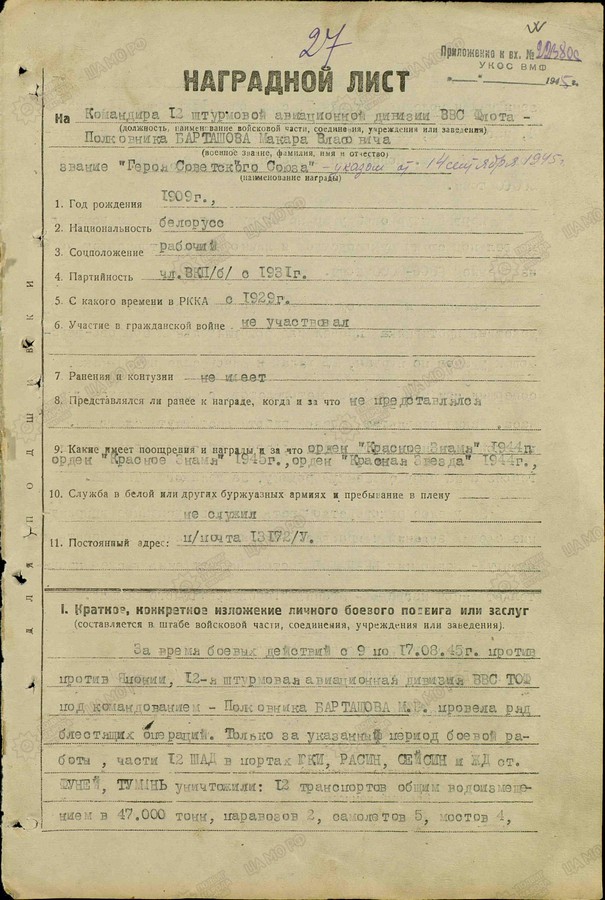 27
Приложение к вх. № 22380с
УКОС ВМФ
1945 г.
НАГРАДНОЙ ЛИСТ
На Командира 12 штурмовой авиационной дивизии ВВС Флота -
(должность, наименование войсковой части, соединения, учреждения или заведения)
Полковника БАРТАШОВА Макара Власовича
(военное звание, фамилия, имя и отчество)
звание "Героя Советского Союза" - указом от 14 сентября 1945г.
(наименование награды)
1. Год рождения 1909г.,
2. Национальность белорусс
3. Соцположение рабочий
4. Партийность чл.ВКП/б/ с 1931г.
5. С какого времени в РККА с 1929г.
6. Участие в гражданской войне не участвовал
7. Ранения и контузии не имеет
8. Представлялся ли ранее к награде, когда и за что не представлялся
9. Какие имеет поощрения и награды и за что орден "Красное Знамя" 1944г.
орден "Красное Знамя" 1945г., орден "Красная Звезда" 1944г.,
10. Служба в белой или других буржуазных армиях и пребывание в плену
не служил
11. Постоянный адрес: п/почта 13172/У.
для подшивки
I. Краткое, конкретное изложение личного боевого подвига или заслуг
(составляется в штабе войсковой части, соединения, учреждения или заведения).
За время боевых действий с 9 по 17.08.45г. против
против Японии, 12-я штурмовая авиационная дивизия ВВС ТОФ
под командованием - Полковника БАРТАШОВА М.В. провела ряд
блестящих операций. Только за указанный период боевой ра-
боты, части 12 ШАД в портах ЮКИ, РАСИН, СЕЙСИН и ЖД ст.
ФУНЕЙ, ТУМЫНЬ уничтожили: 12 транспортов общим водоизмеще-
нием в 47.000 тонн, паравозов 2, самолетов 5, мостов 4,
ЦАМО.РФ